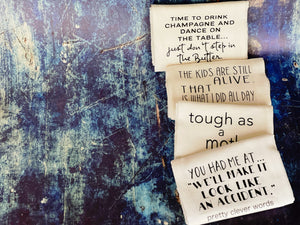 TIME TO DRINK
CHAMPAGNE AND
DANCE ON
THE TABLE...
just don't step in
the Butter
THE KIDS ARE STILL
ALIVE
THAT
IS WHAT I DID ALL DAY
tough as
a
YOU HAD ME AT...
"WE'LL MAKE IT
LOOK LIKE
AN ACCIDENT."
pretty clever words